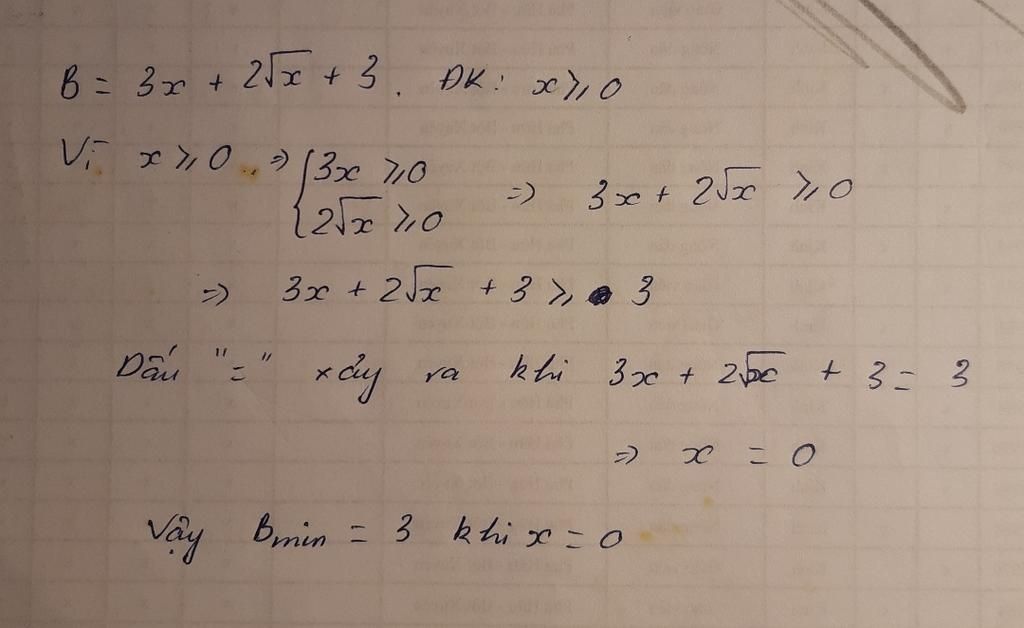 B = 3x + 2√x + 3. ĐK: x ⩾ 0
Vì x ⩾ 0 ⇒ { 3x ⩾ 0 ⇒ 3x + 2√x ⩾ 0
2√x ⩾ 0
⇒ 3x + 2√x + 3 ⩾ 3
Dấu "=" xảy ra khi 3x + 2√x + 3 = 3
⇒ x = 0
Vậy Bmin = 3 khi x = 0